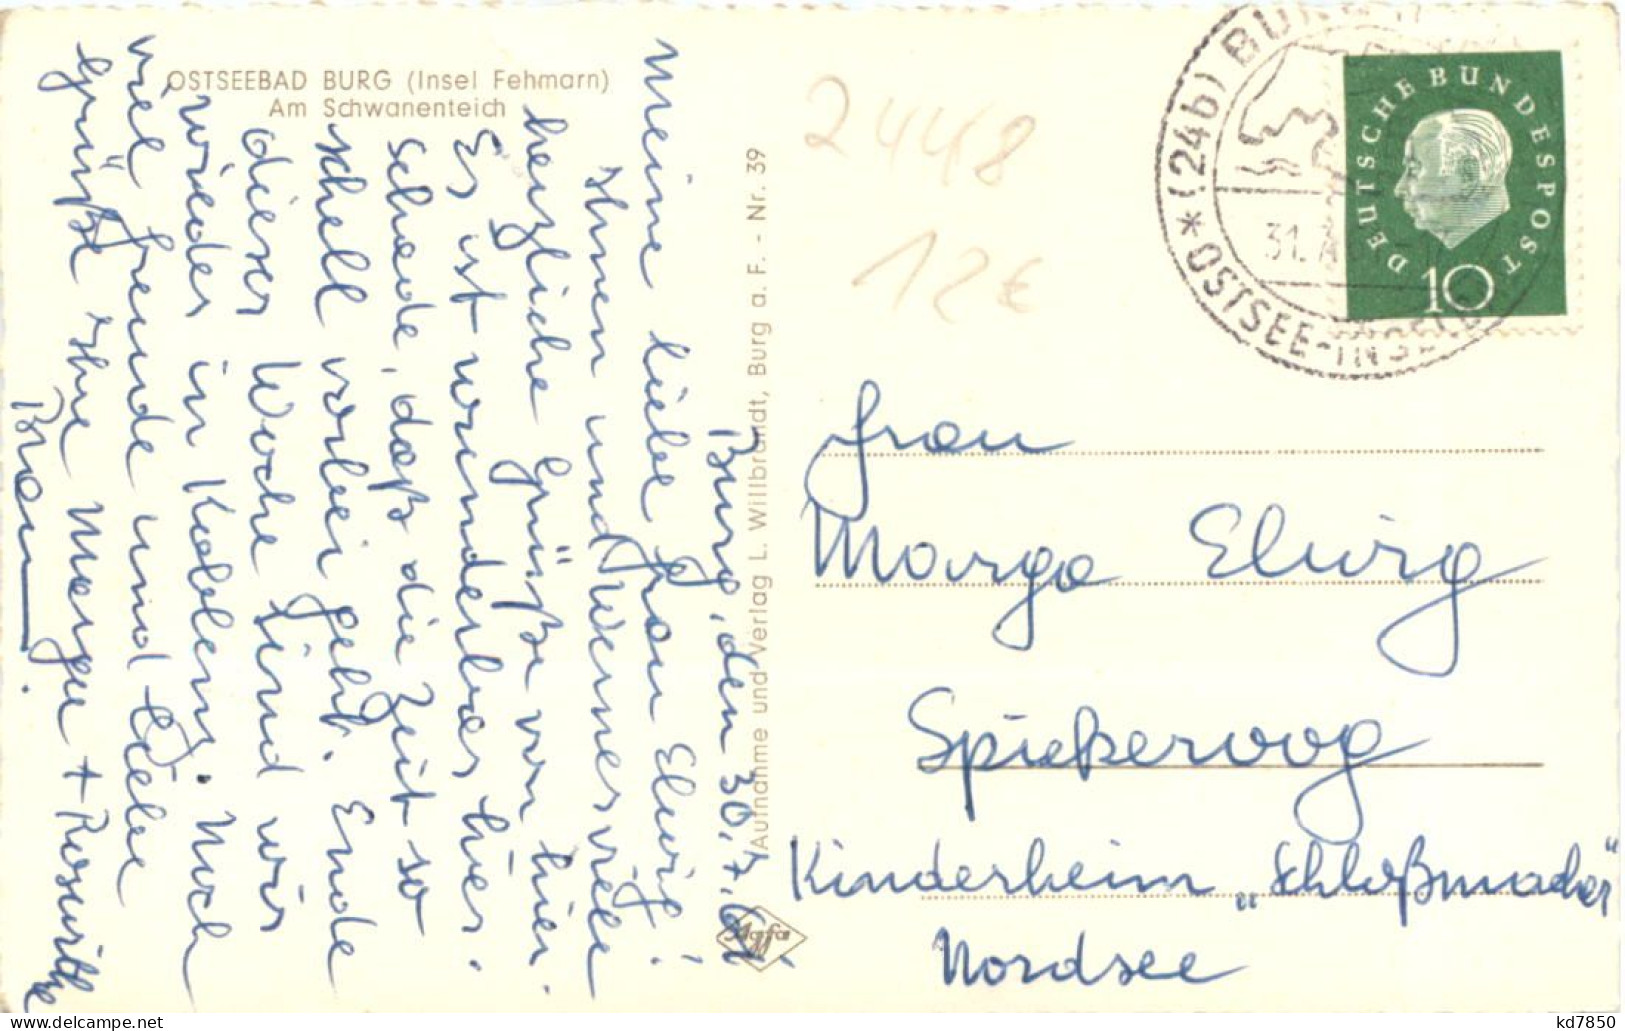 OSTSEEBAD BURG (Insel Fehmarn)
Am Schwanenteich
Burg, den 30.7.61
Meine liebe Frau Elwig!
Ihnen und Werner viele
herzliche Grüße von hier.
Es ist wunderbar hier.
Schade, daß die Zeit so
schell vorbei geht. Ende
dieser Woche sind wir
wieder in Koblenz. Noch
viel Freude und liebe
Grüße Ihre Margu + Roswitha
Braun.
Aufnahme und Verlag L. Willbrandt, Burg a. F. - Nr. 39
Agfa
2448
12€
* (24b) BURG
31.
OSTSEE-INSEL
DEUTSCHE BUNDESPOST
10
Frau
Marga Elwig
Spiekeroog
Kinderheim „Schloßmacher"
Nordsee
kd7850